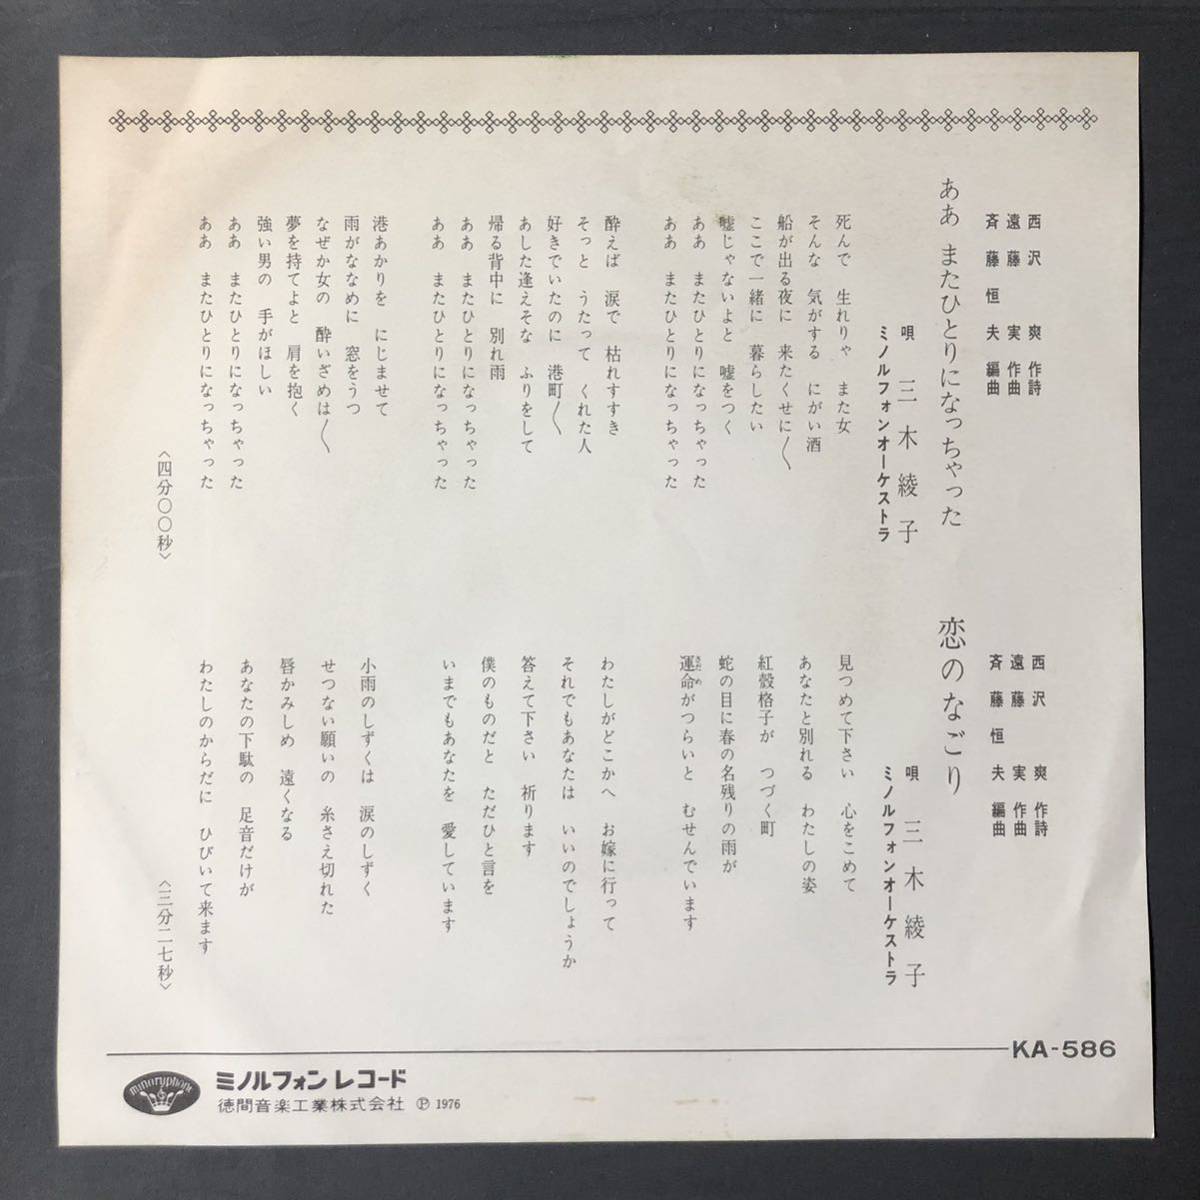 西沢 爽 作詩
遠藤 実 作曲
斉藤恒夫 編曲
ああ またひとりになっちゃった
唄 三木綾子
ミノルフォンオーケストラ
死んで 生れりゃ また女
そんな 気がする にがい酒
船が出る夜に 来たくせに〳〵
ここで一緒に 暮らしたい
嘘じゃないよと 嘘をつく
ああ またひとりになっちゃった
ああ またひとりになっちゃった
酔えば 涙で 枯れすすき
そっと うたって くれた人
好きでいたのに 港町〳〵
あした逢えそな ふりをして
帰る背中に 別れ雨
ああ またひとりになっちゃった
ああ またひとりになっちゃった
港あかりを にじませて
雨がななめに 窓をうつ
なぜか女の 酔いざめは〳〵
夢を持てよと 肩を抱く
強い男の 手がほしい
ああ またひとりになっちゃった
ああ またひとりになっちゃった
〈四分〇〇秒〉
西沢 爽 作詩
遠藤 実 作曲
斉藤恒夫 編曲
恋のなごり
唄 三木綾子
ミノルフォンオーケストラ
見つめて下さい 心をこめて
あなたと別れる わたしの姿
紅殻格子が つづく町
蛇の目に春の名残りの雨が
運命がつらいと むせんでいます
わたしがどこかへ お嫁に行って
それでもあなたは いいのでしょうか
答えて下さい 祈ります
僕のものだと ただひと言を
いまでもあなたを 愛しています
小雨のしずくは 涙のしずく
せつない願いの 糸さえ切れた
唇かみしめ 遠くなる
あなたの下駄の 足音だけが
わたしのからだに ひびいて来ます
〈三分二七秒〉
KA-586
minoryphone
ミノルフォン レコード
徳間音楽工業株式会社 Ⓟ 1976